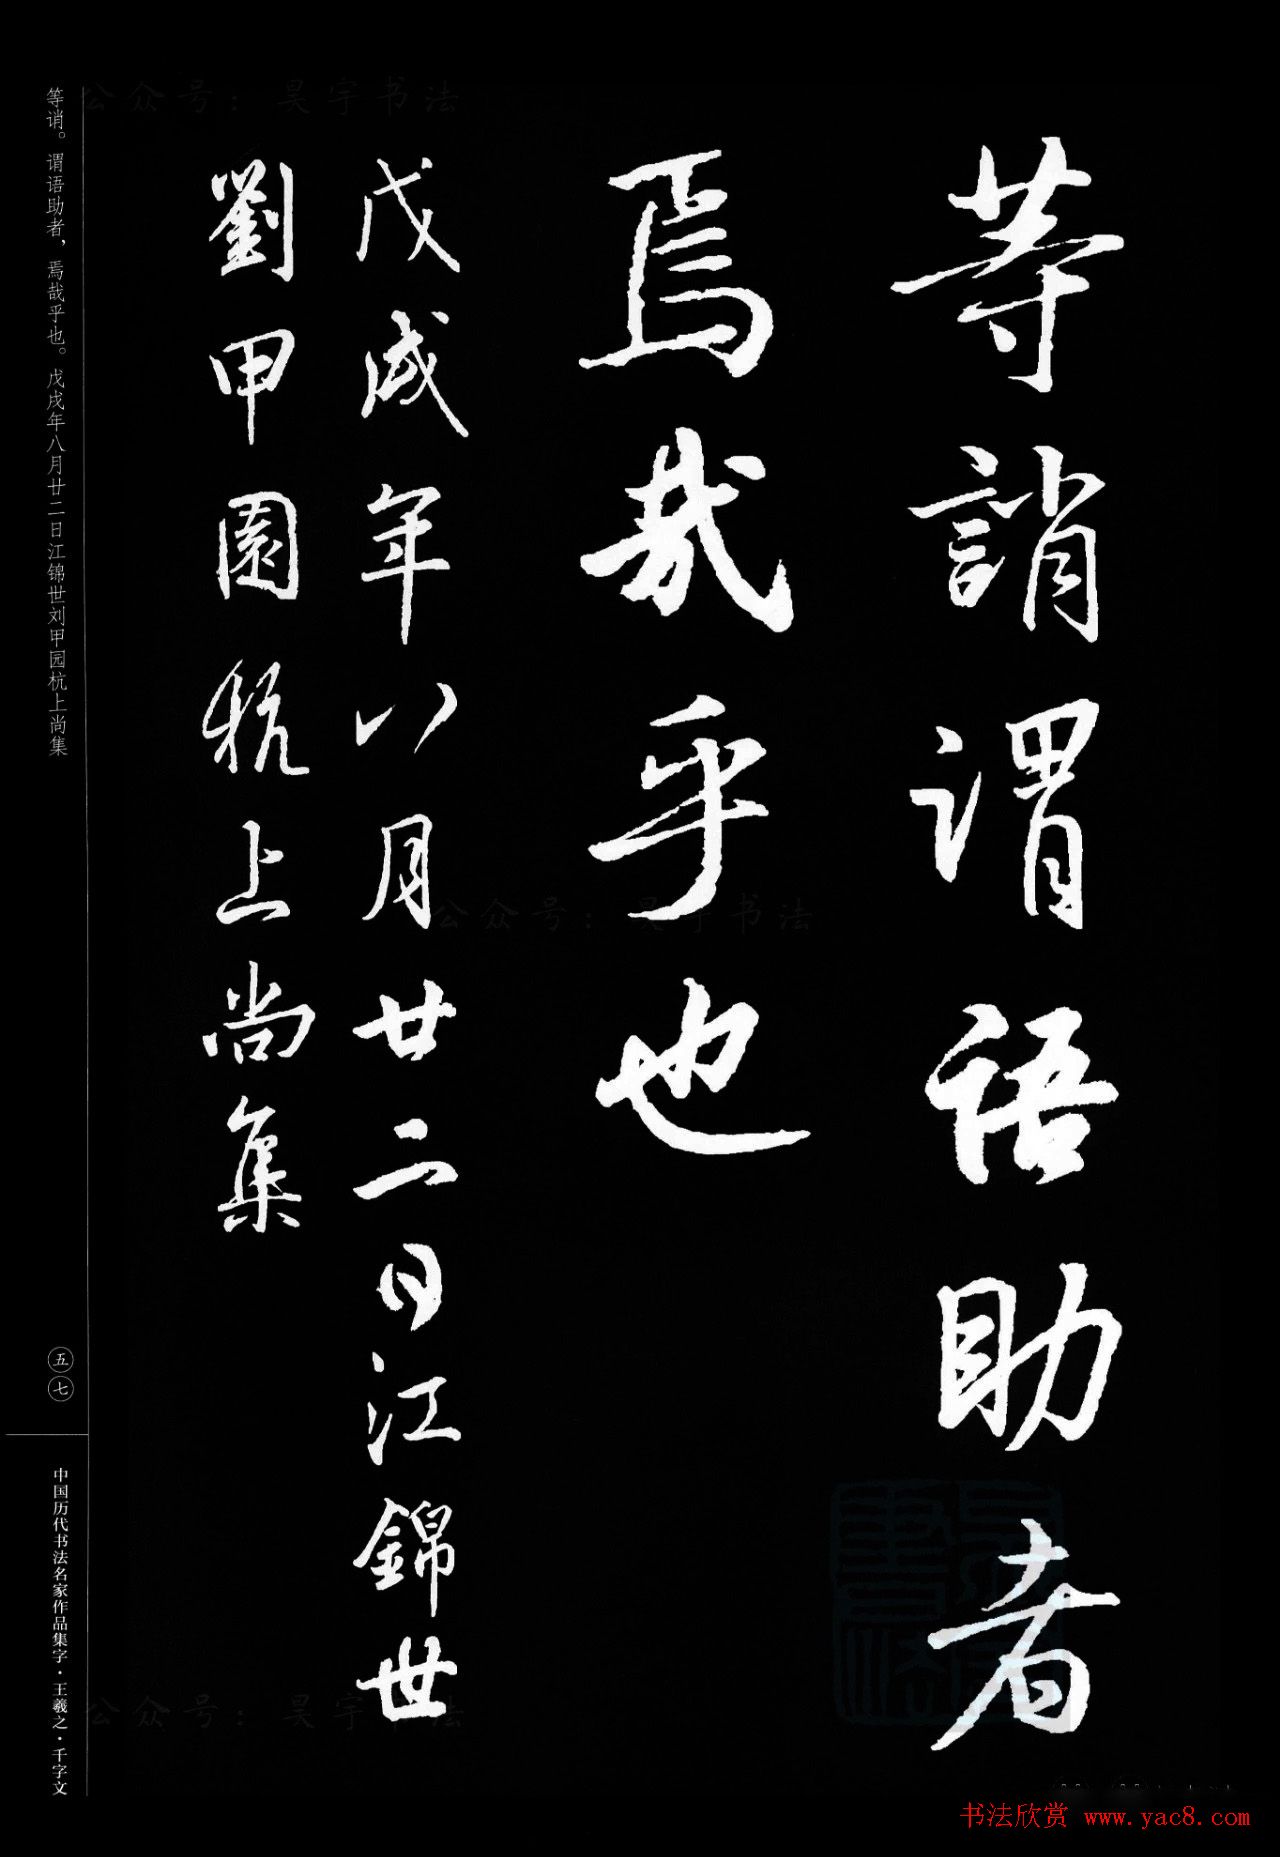 等誚謂语助者
焉哉乎也
戊戌年八月廿二日江錦世
劉甲園杭上尚集
等诮。谓语助者，焉哉乎也。戊戌年八月廿二日江锦世刘甲园杭上尚集
五七
中国历代书法名家作品集字·王羲之·千字文
公众号：昊宇书法
公众号：昊宇书法
公众号：昊宇书法
书法欣赏 www.yac8.com